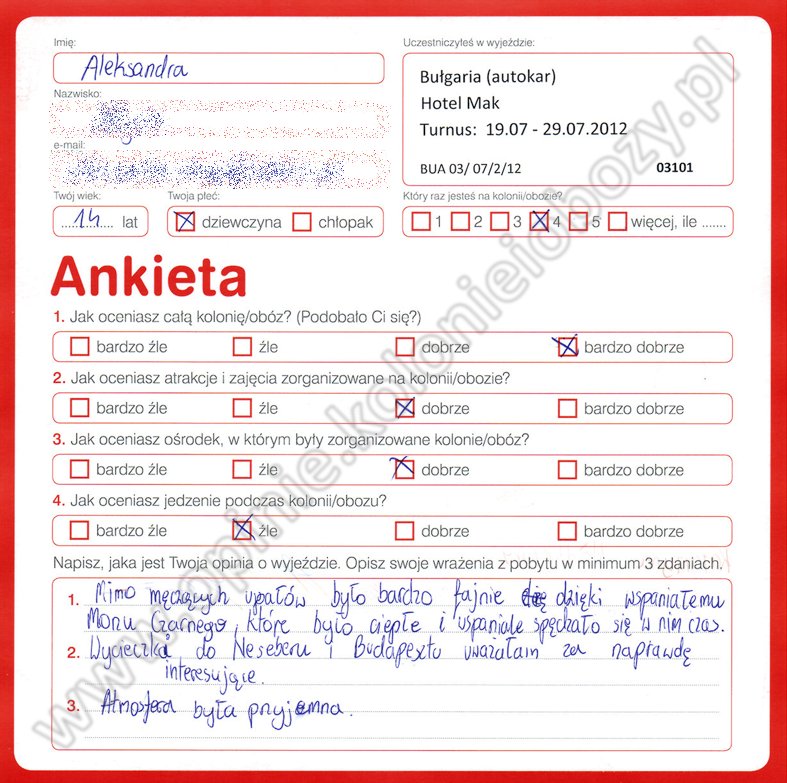 Imię:
Aleksandra
Uczestniczyłeś w wyjeździe:
Bułgaria (autokar)
Hotel Mak
Turnus: 19.07 - 29.07.2012
BUA 03/ 07/2/12 03101
Nazwisko:
e-mail:
Twój wiek:
14 lat
Twoja płeć:
dziewczyna chłopak
Który raz jesteś na kolonii/obozie?
1 2 3 4 5 więcej, ile .......
Ankieta
1. Jak oceniasz całą kolonię/obóz? (Podobało Ci się?)
bardzo źle źle dobrze bardzo dobrze
2. Jak oceniasz atrakcje i zajęcia zorganizowane na kolonii/obozie?
bardzo źle źle dobrze bardzo dobrze
3. Jak oceniasz ośrodek, w którym były zorganizowane kolonie/obóz?
bardzo źle źle dobrze bardzo dobrze
4. Jak oceniasz jedzenie podczas kolonii/obozu?
bardzo źle źle dobrze bardzo dobrze
Napisz, jaka jest Twoja opinia o wyjeździe. Opisz swoje wrażenia z pobytu w minimum 3 zdaniach.
1. Mimo męczących upałów było bardzo fajnie dzięki wspaniałemu
Morzu Czarnego, które było ciepłe i wspaniale spędzało się w nim czas.
2. Wycieczką do Neseberu i Budapesztu uważałam za naprawdę
interesujące.
3. Atmosfera była przyjemna.
www.opinie.kolonieiobozy.pl